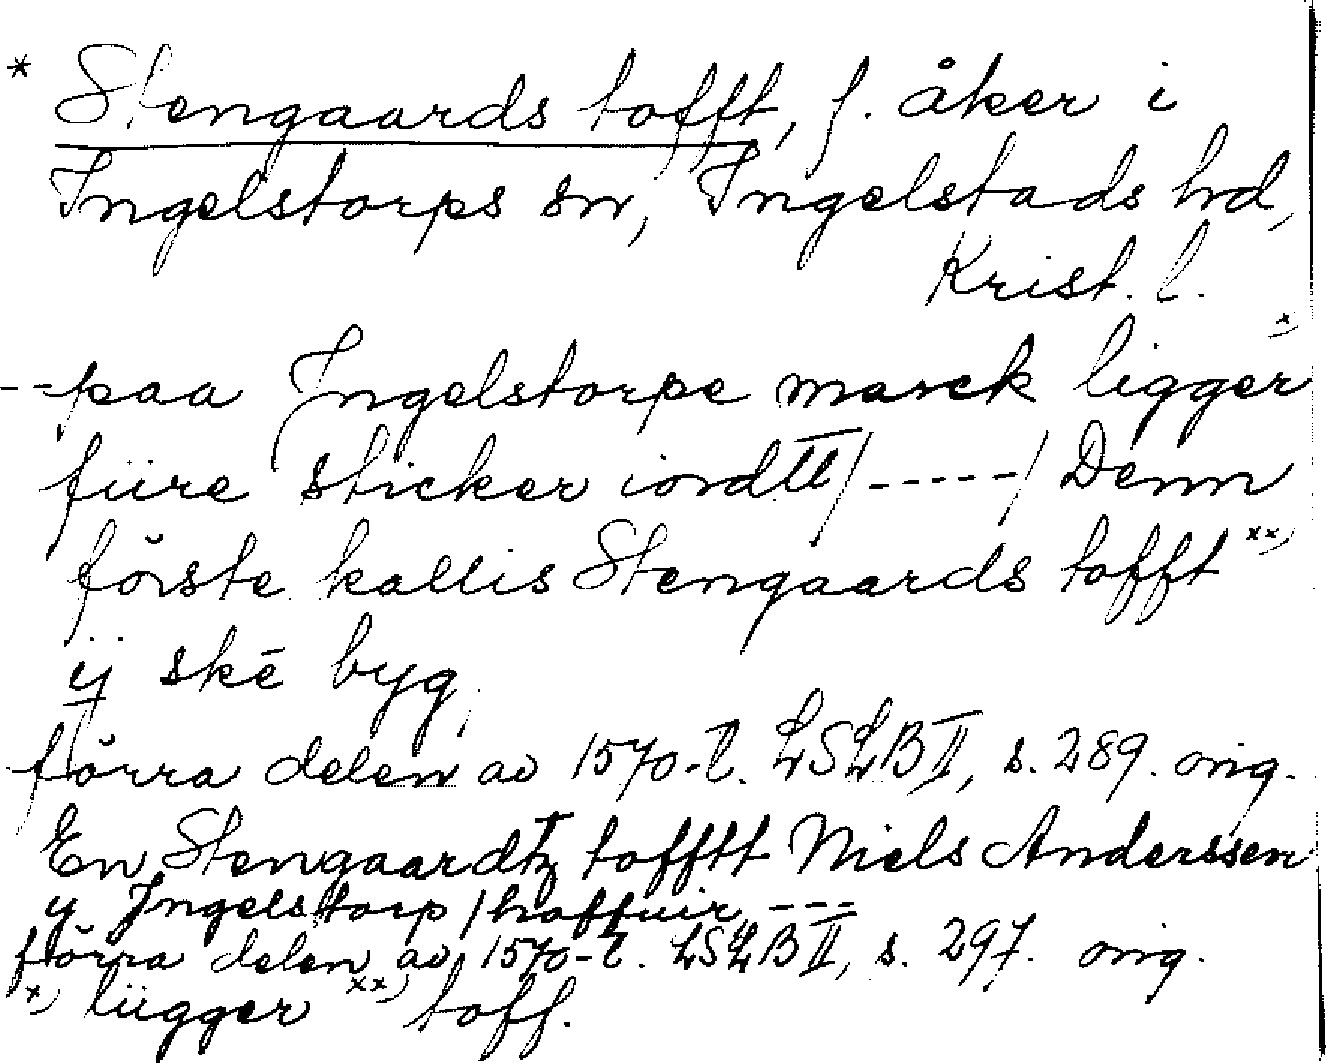 * Stengaards tofft, f. åker i
Ingelstorps sn, Ingelstads hd,
Krist. l.
-- paa Ingelstorpe marck ligger x)
fiire sticker iordtt /-----/ Denn
förste kallis Stengaards tofft xx)
ÿ skē byg,
förra delen av 1570-t. LSLB II, s. 289. orig.
En Stengaardtz tofftt Niels Anderssen
y Ingelstorp / haffuir ---
förra delen av 1570-t. LSLB II, s. 297. orig.
x) liigger xx) toff.